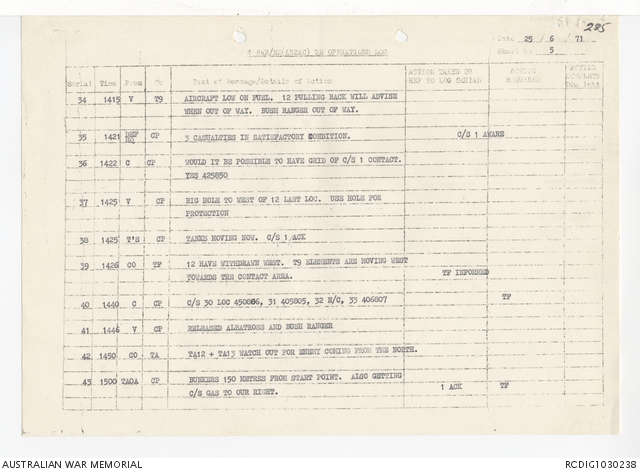 285
4 RAR/NZ(ANZAC) BN OPERATIONS LOG
Date 25 / 6 / 71
Sheet No 5
Serial Time From To Text of Message/Details of Action ACTION TAKEN OR REP TO LOG
34 1415 V T9 AIRCRAFT LOW ON FUEL. 12 PULLING BACK WILL ADVISE
WHEN OUT OF WAY. BUSH RANGER OUT OF WAY.
35 1421 CP 3 CASUALTIES IN SATISFACTORY CONDITION. C/S 1 AWARE
36 1422 C CP WOULD IT BE POSSIBLE TO HAVE GRID OF C/S 1 CONTACT.
YES 425850
37 1425 V CP BIG HOLE TO WEST OF 12 LAST LOC. USE HOLE FOR
PROTECTION
38 1425 T'S CP TANKS MOVING NOW. C/S 1 ACK
39 1426 CO TF 12 HAVE WITHDRAWN WEST. T9 ELEMENTS ARE MOVING WEST
TOWARDS THE CONTACT AREA. TF INFORMED
40 1440 C CP C/S 30 LOC 450806, 31 405805, 32 N/C, 33 406807 TF
41 1446 V CP RELEASED ALBATROSS AND BUSH RANGER
42 1450 CO TA TA12 + TA13 WATCH OUT FOR ENEMY COMING FROM THE NORTH.
43 1500 TAOA CP BUNKERS 150 METRES FROM START POINT. ALSO GETTING
C/S GAS TO OUR RIGHT. 1 ACK TF
AUSTRALIAN WAR MEMORIAL RCDIG1030238